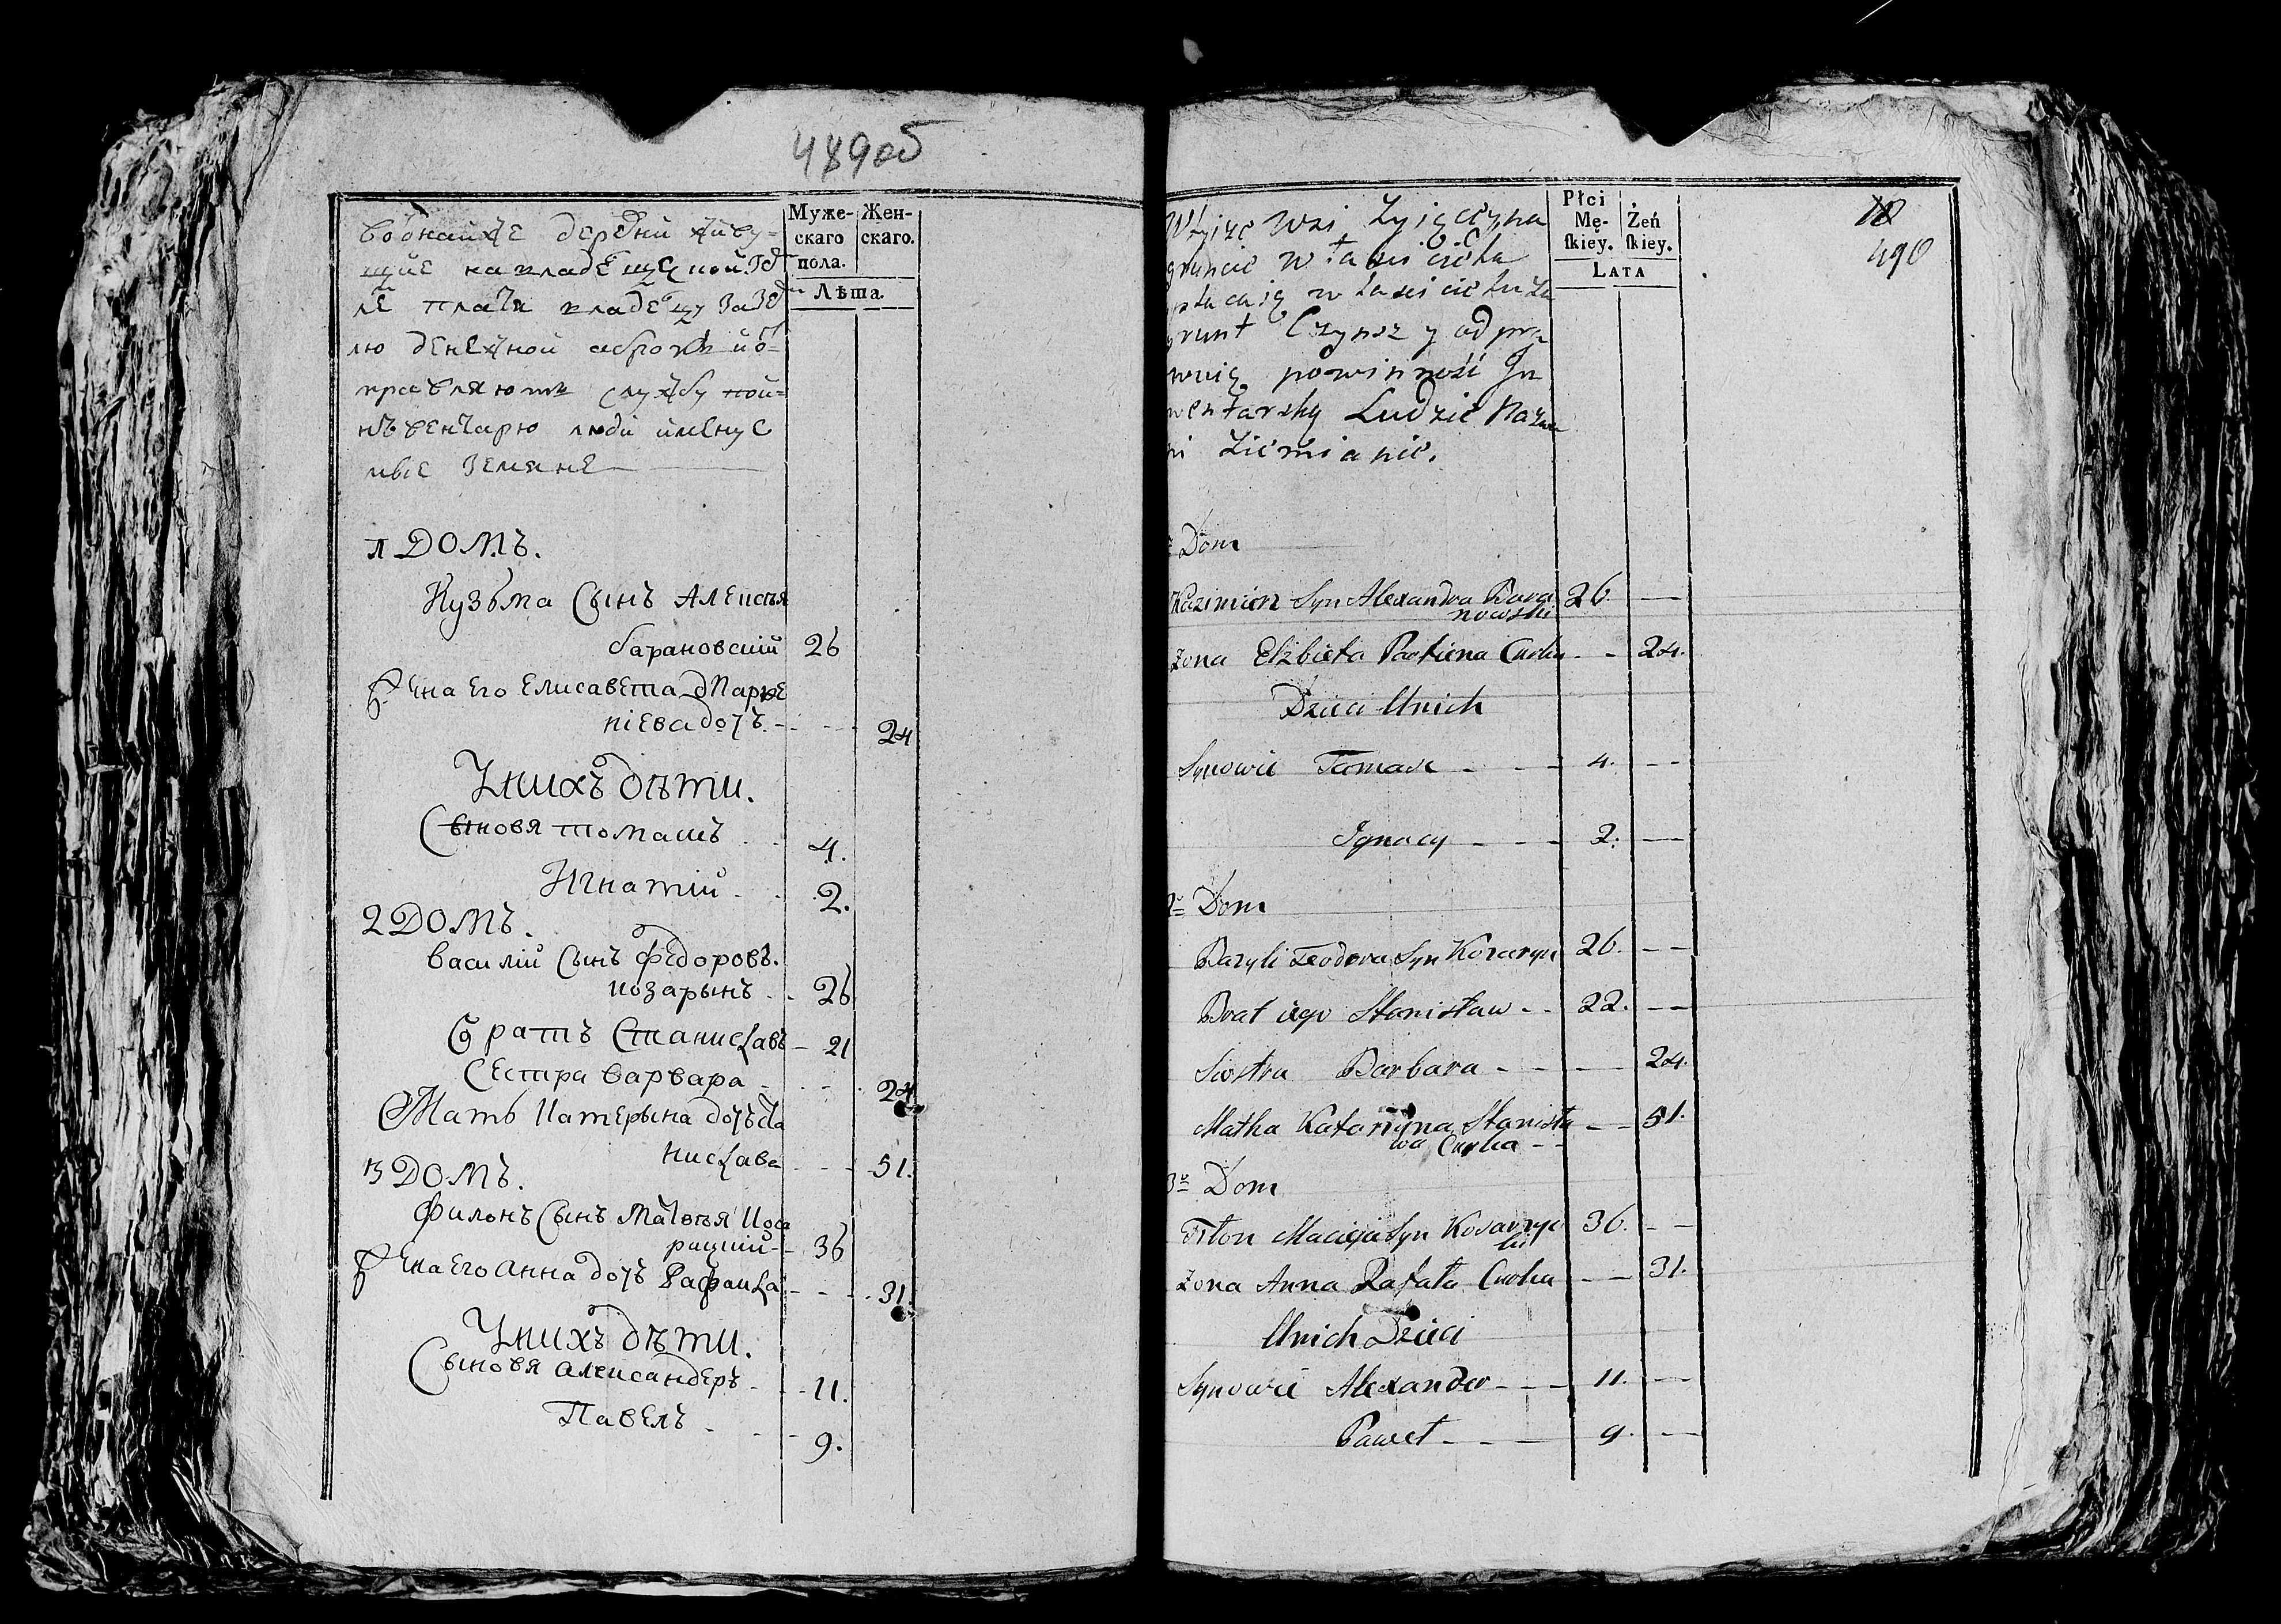 489об
Муже- Жен-
скаго скаго.
пола.
Лѣта.
воднайже деревни живу-
щие на владе
ле плати владе за зе
лю денежной
правляютъ службу пой-
нъвентарю люди именуе
мые земяне
1 Домъ.
Кузьма Сынъ Алексѣя
барановский 26
Жена Его Елисавета Парѳе
ніева дочъ. - - - 24
Унихъ дѣти.
Сыновя томашъ 4.
Игнатій 2.
2 Домъ.
василій Сынъ Федоровъ.
козарынъ 26
братъ Станиславъ - 21
Сестра варвара - - - 24
Мать Катерына дочъ Ста
нислава - - - 51.
3 Домъ.
Филонъ Сынъ Матѳѣя Коза
рицкій - 36
Жена Его Анна дочъ Рафаила - - - 31.
Унихъ дѣти.
Сыновя александеръ - 11.
Павелъ - 9.
Płci
Mę- Żeń
ſkiey. ſkiey.
LATA
18
490
Wtyiże Wsi Żyięcy na
gruncie własciciela
płacaią własciciel za
grunt Czynsz y odpra
wuią powinność In
wentarską Ludzie Nazwa
ni Ziemianie.
Dom
Kazimierz Syn Alexandra Bara 26. —
nowski
Żona Elżbieta Partiena Curka - - 24.
Dzieci Unich
Synowie Tomasz - - - 4. - -
Ignacy - - - 2. —
2o Dom
Bazyli Teodora Syn Kozaryn 26. - -
Brat iego Stanisław - - 22. - -
Siostra Barbara - - — 24.
Matka Katarzyna Stanisła - - 51.
wa Curka - -
3o Dom
Filon Macieja Syn Kosarzyc 36. - -
ki
Żona Anna Rafała Curka - — 31.
Unich Dzieci
Synowie Alexander - - - 11. - -
Paweł - - — 9. - -